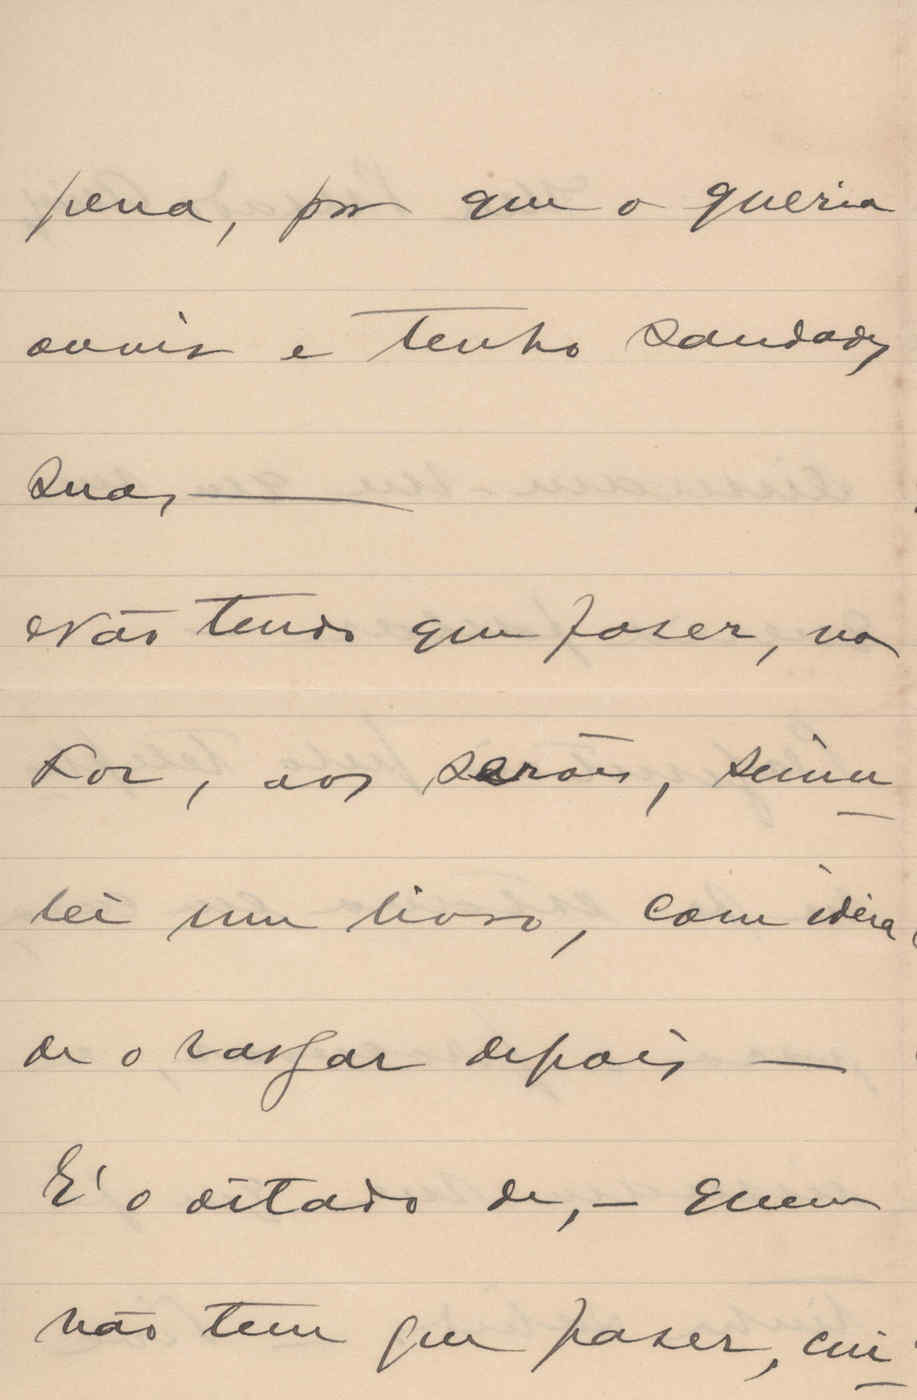 pena, por que o queria
ouvir e tenho saudades
suas, —
Não tendo que faser, na
Foz, aos serões, simu_
lei um livro, com idéia
de o rasgar depois —
E' o ditado de, — quem
não tem que faser, cui_